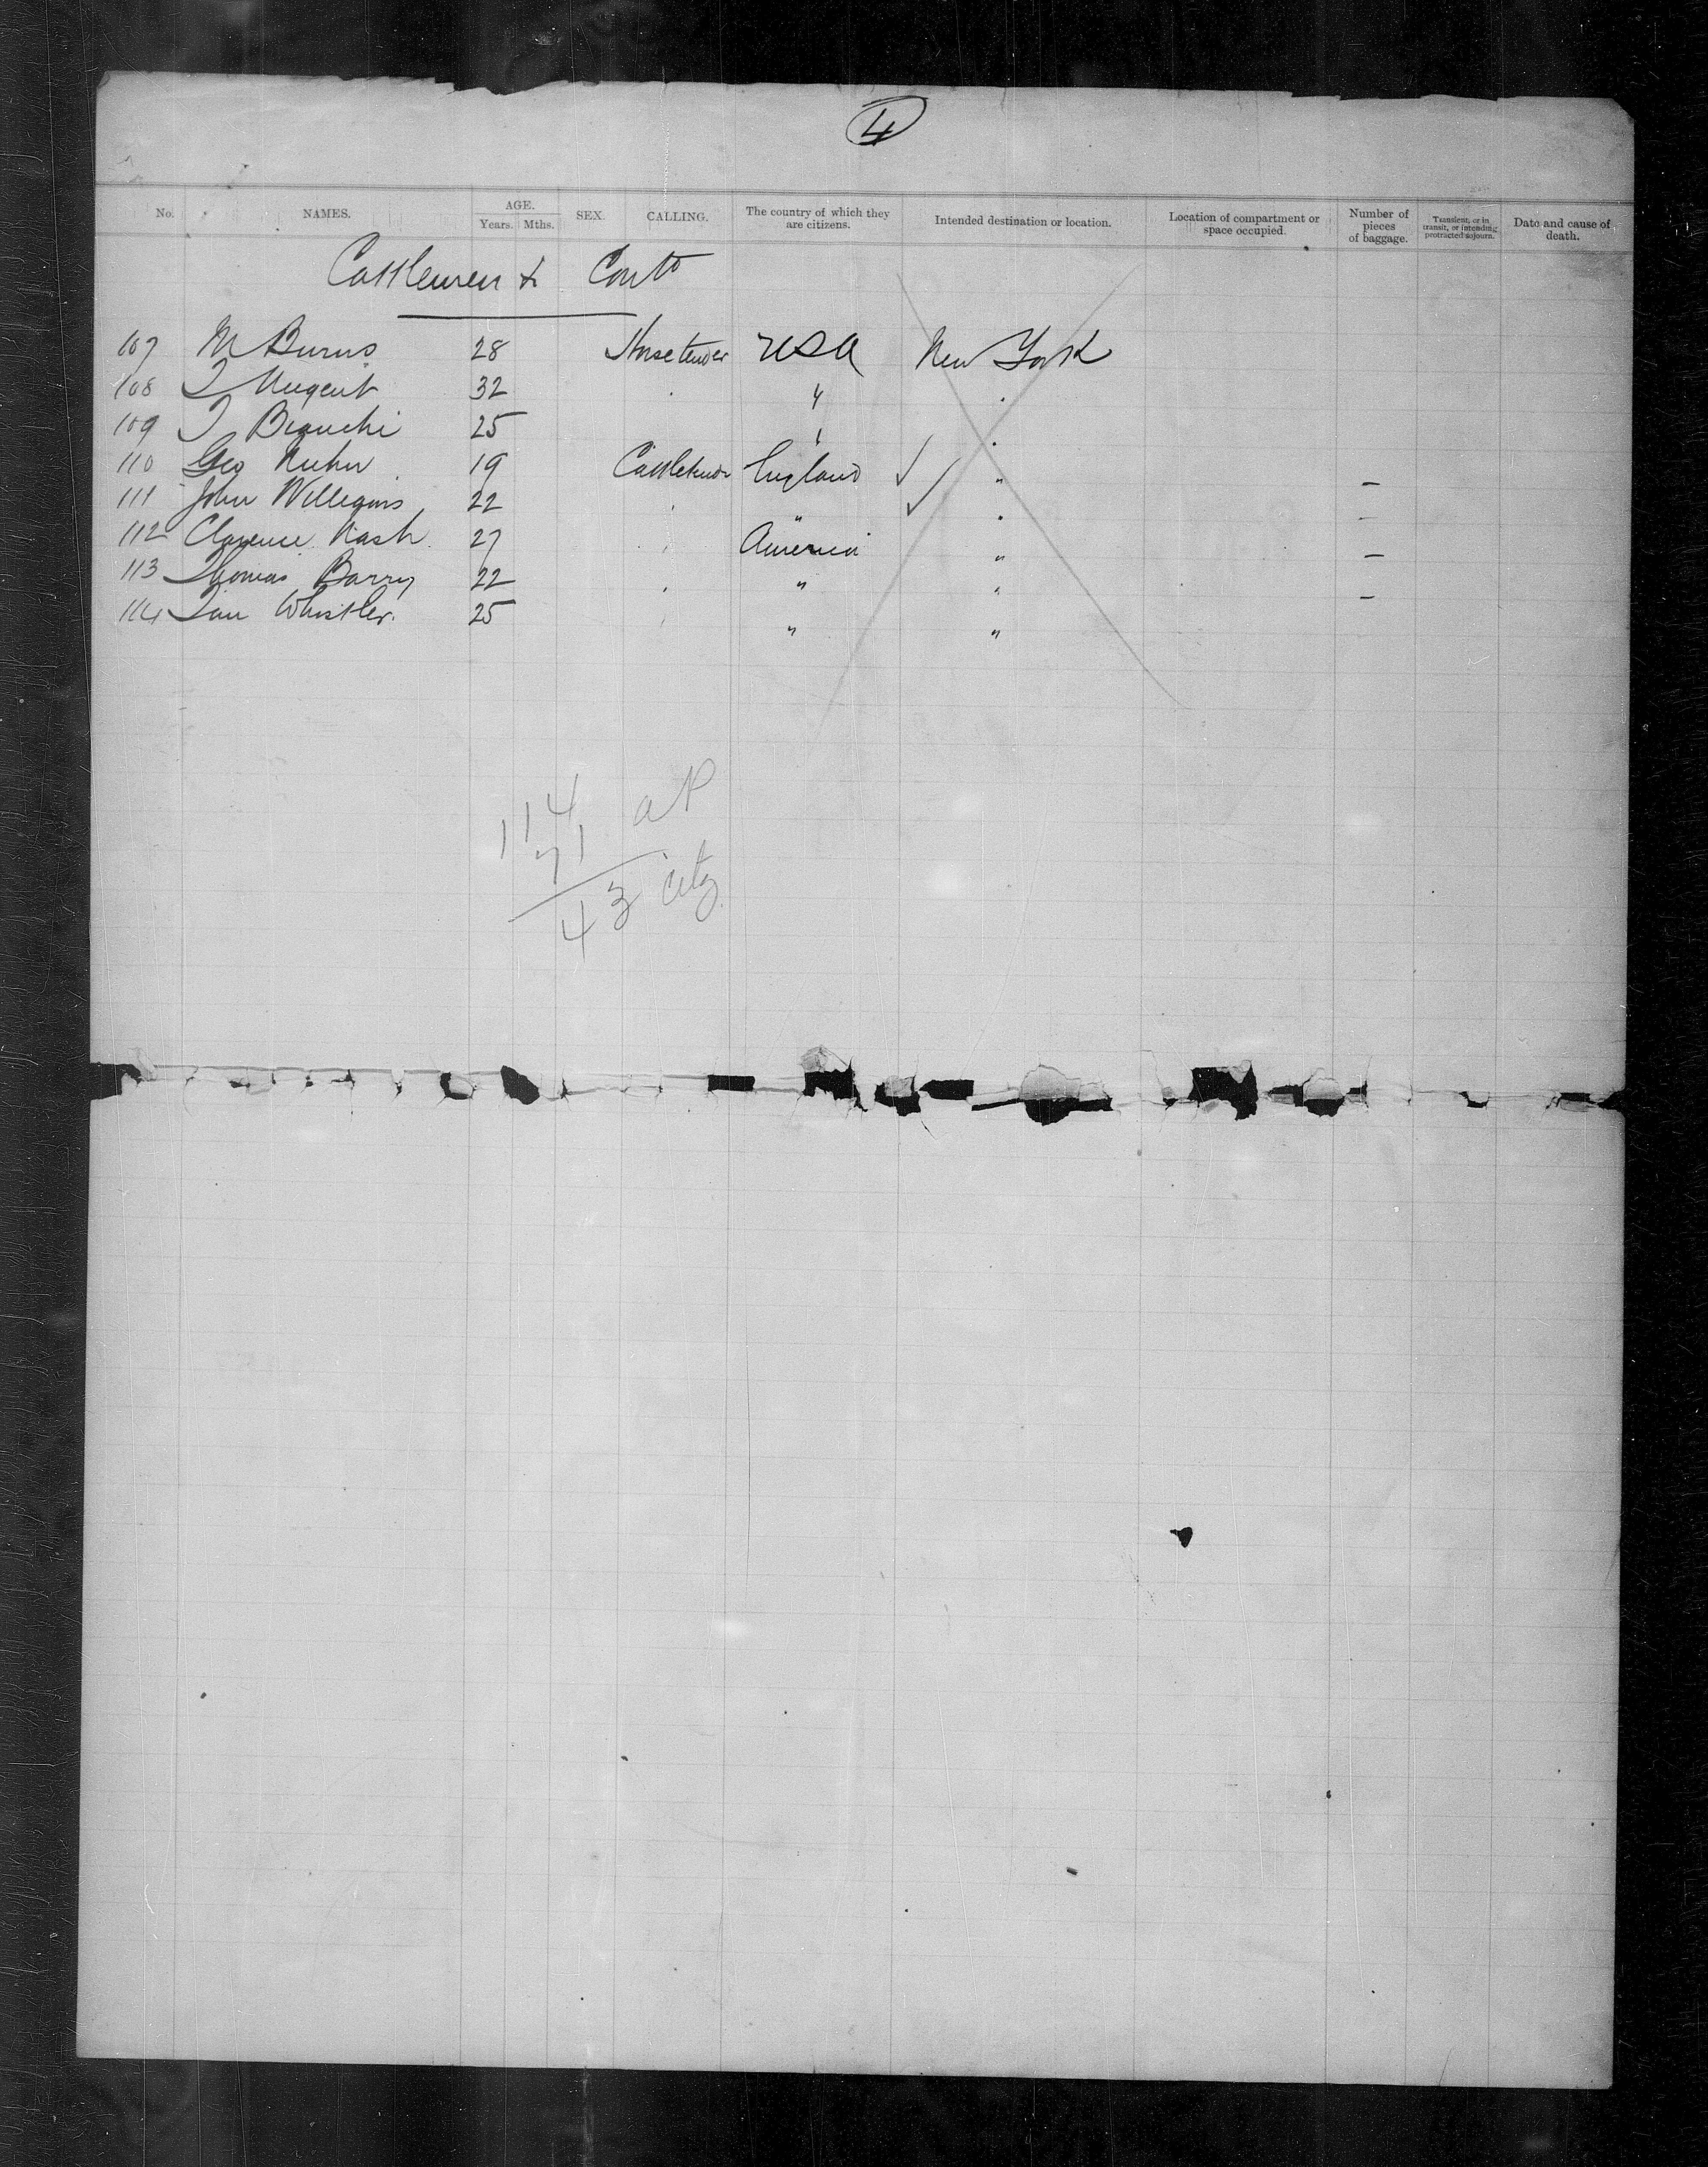 4
No. NAMES. AGE. Years. Mths. SEX. CALLING. The country of which they are citizens. Intended destination or location. Location of compartment or space occupied. Number of pieces of baggage. Transient, or in transit, or intending protracted sojourn. Date and cause of death.
Cattlemen & Contd
107 M Burns 28 Horsetender USA New York
108 J Nugent 32 . " .
109 J Bianchi 25 " .
110 Geo 19 Cattletender England ✓ " –
111 John Williams 22 . " ✓ . –
112 Clarence Nash 27 . America " –
113 Thomas Barry 22 . " " –
114 Whistler. 25 . " "
114 at
71
43 City